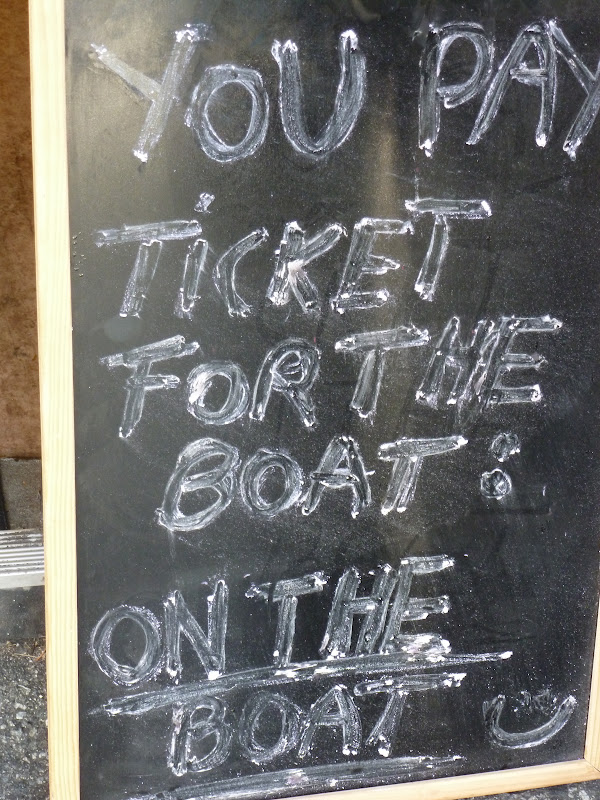 YOU PAY
TiCKET
FOR THE
BOAT:
ON THE
BOAT